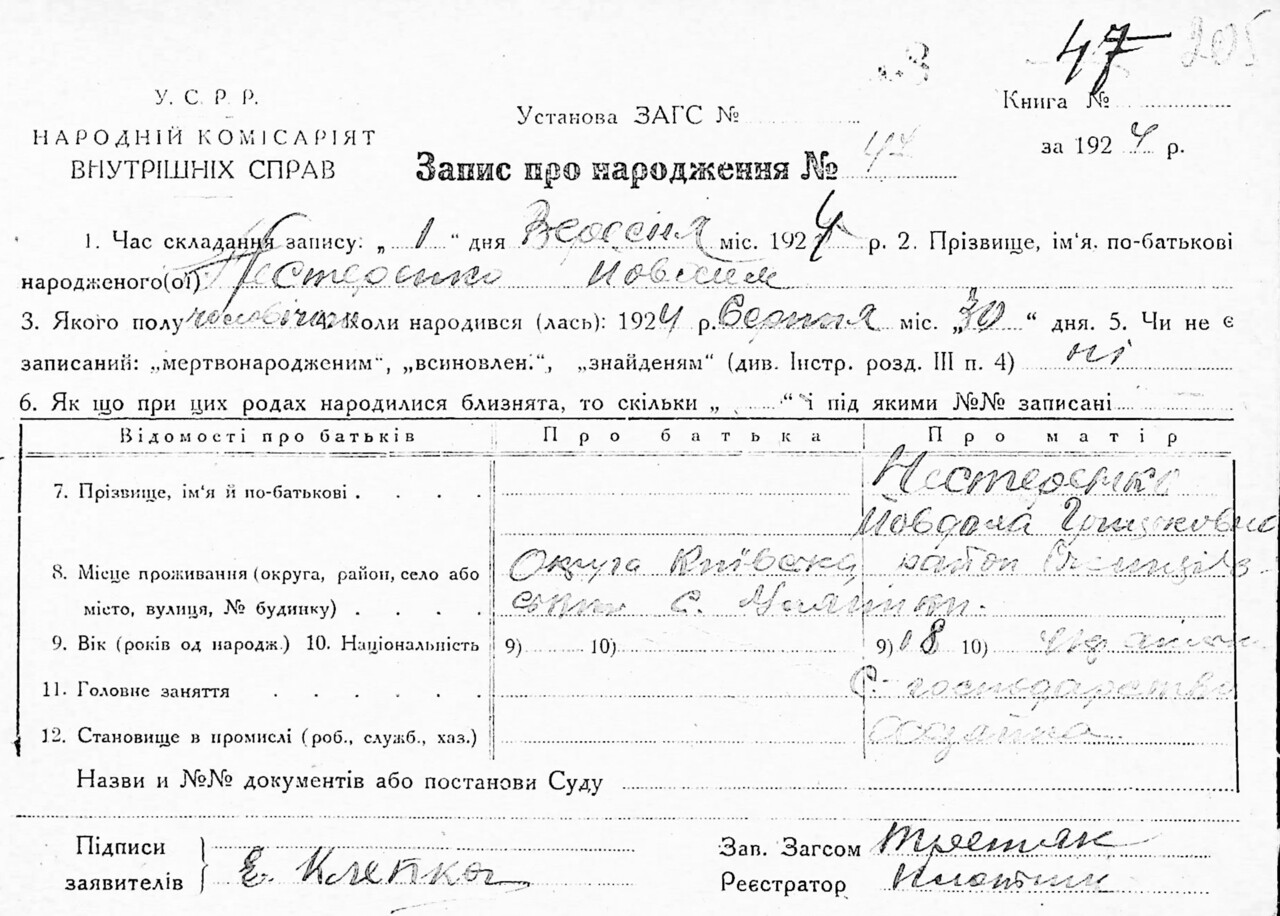 47 205
У. С. Р. Р.
НАРОДНІЙ КОМІСАРІЯТ
ВНУТРІШНІХ СПРАВ
Установа ЗАГС №
Книга №
за 1924 р.
Запис про народження № 47
1. Час складання запису: „ 1 “ дня Вересня міс. 1924 р. 2. Прізвище, ім'я. по-батькові
народженого(ої) Нестеренко
3. Якого полу чоловічин 4. Коли народився (лась): 1924 р. Серпня міс. „30“ дня. 5. Чи не є
записаний: „мертвонародженим“, „всиновлен.“, „знайденям“ (див. Інстр. розд. III п. 4) ні
6. Як що при цих родах народилися близнята, то скільки „ “ і під якими №№ записані
Відомості про батьків Про батька Про матір
7. Прізвище, ім'я й по-батькові . . . . Нестеренко
Йовдоха
8. Місце проживання (округа, район, село або Округа Київська, район
місто, вулиця, № будинку) . . . . с.
9. Вік (років од народж.) 10. Національність 9) 10) 9) 18 10)
11. Головне заняття . . . . . С. господарство
12. Становище в промислі (роб., служб., хаз.) хазяйка
Назви и №№ документів або постанови Суду
Підписи
заявителів Е. Клепка
Зав. Загсом Третяк
Реєстратор